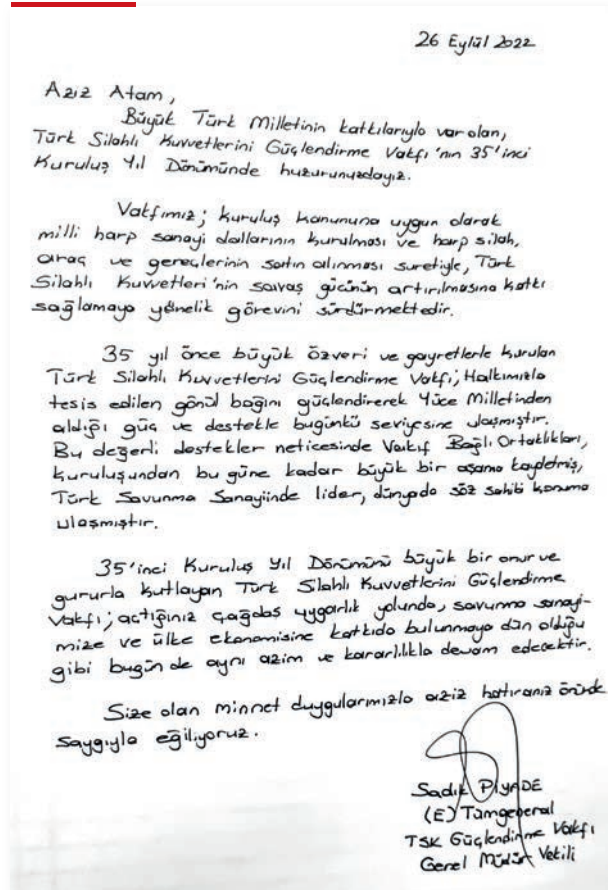 26 Eylül 2022
Aziz Atam,
Büyük Türk Milletinin katkılarıyla var olan,
Türk Silahlı Kuvvetlerini Güçlendirme Vakfı'nın 35'inci
Kuruluş Yıl Dönümünde huzurunuzdayız.
Vakfımız; kuruluş kanununa uygun olarak
milli harp sanayi dallarının kurulması ve harp silah,
araç ve gereçlerinin satın alınması suretiyle, Türk
Silahlı Kuvvetleri'nin savaş gücünün artırılmasına katkı
sağlamaya yönelik görevini sürdürmektedir.
35 yıl önce büyük özveri ve gayretlerle kurulan
Türk Silahlı Kuvvetlerini Güçlendirme Vakfı; Halkımızla
tesis edilen gönül bağını güçlendirerek Yüce Milletinden
aldığı güç ve destekle bugünkü seviyesine ulaşmıştır.
Bu değerli destekler neticesinde Vakıf Bağlı Ortaklıkları,
kuruluşundan bu güne kadar büyük bir aşama kaydetmiş,
Türk Savunma Sanayiinde lider, dünyada söz sahibi konuma
ulaşmıştır.
35'inci Kuruluş Yıl Dönümünü büyük bir onur ve
gururla kutlayan Türk Silahlı Kuvvetlerini Güçlendirme
Vakfı; açtığınız çağdaş uygarlık yolunda, savunma sanayi-
mize ve ülke ekonomisine katkıda bulunmaya dün olduğu
gibi bugün de aynı azim ve kararlılıkla devam edecektir.
Size olan minnet duygularımızla aziz hatıranız önünde
saygıyla eğiliyoruz.
Sadık PİYADE
(E) Tümgeneral
TSK Güçlendirme Vakfı
Genel Müdür Vekili